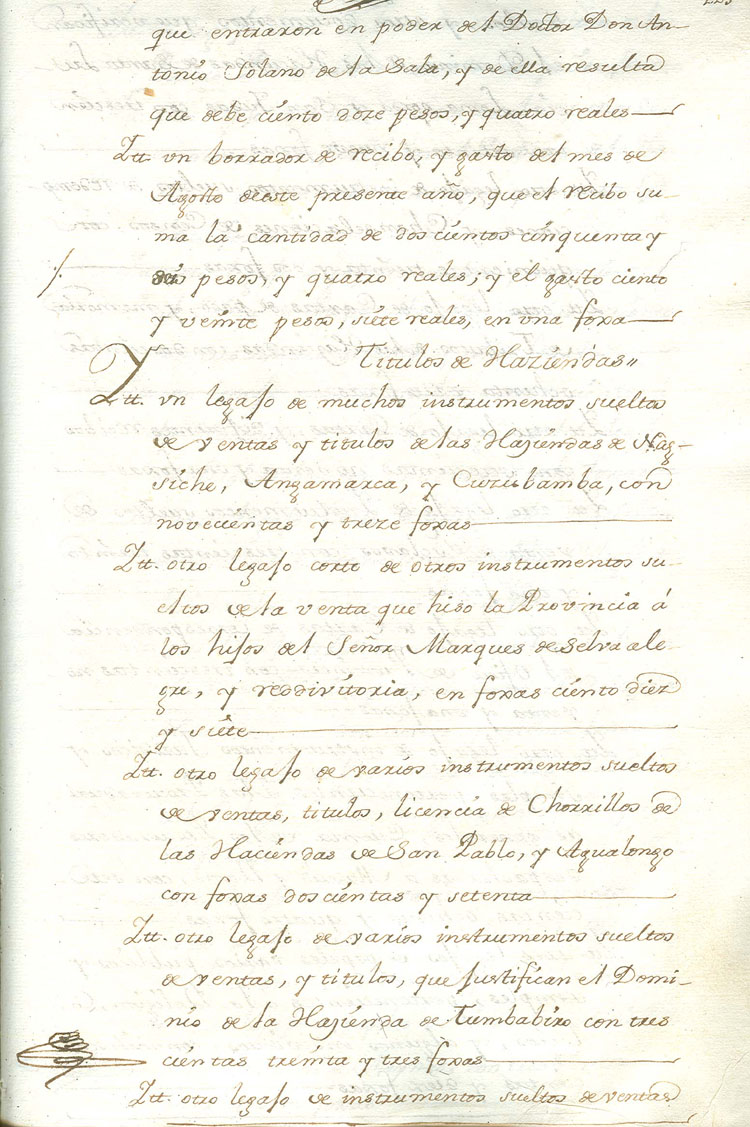 que entraron en poder del Doctor Don An-
tonio Solano de la Sala, y de ella resulta
que debe ciento doze pesos, y quatro reales
Itt. vn borrador de recibo, y gasto del mes de
Agosto de este presente año, que el recibo su-
ma la cantidad de dos cientos cinquenta y
dos pesos, y quatro reales; y el gasto ciento
y veinte pesos, siete reales, en vna foxa
Titulos de Haziendas"
Itt. vn legajo de muchos instrumentos sueltos
de ventas y titulos de las Haziendas de Nag-
siche, Angamarca, y Curubamba, con
novecientas y treze foxas
Itt. otro legajo corto de otros instrumentos su-
eltos de la venta que hiso la Provincia á
los hijos del Señor Marques de Selva ale-
gre, y reddivitoria, en foxas ciento diez
y siete
Itt. otro legajo de varios instrumentos sueltos
de ventas, titulos, licencia de Chorrillos de
las Haciendas de San Pablo, y Agualongo
con foxas dos cientas y setenta
Itt. otro legajo de varios instrumentos sueltos
de ventas, y titulos, que justifican el Domi-
nio de la Hazienda de Tumbabiro con tres
cientas treinta y tres foxas
Itt. otro legajo de instrumentos sueltos de ventas